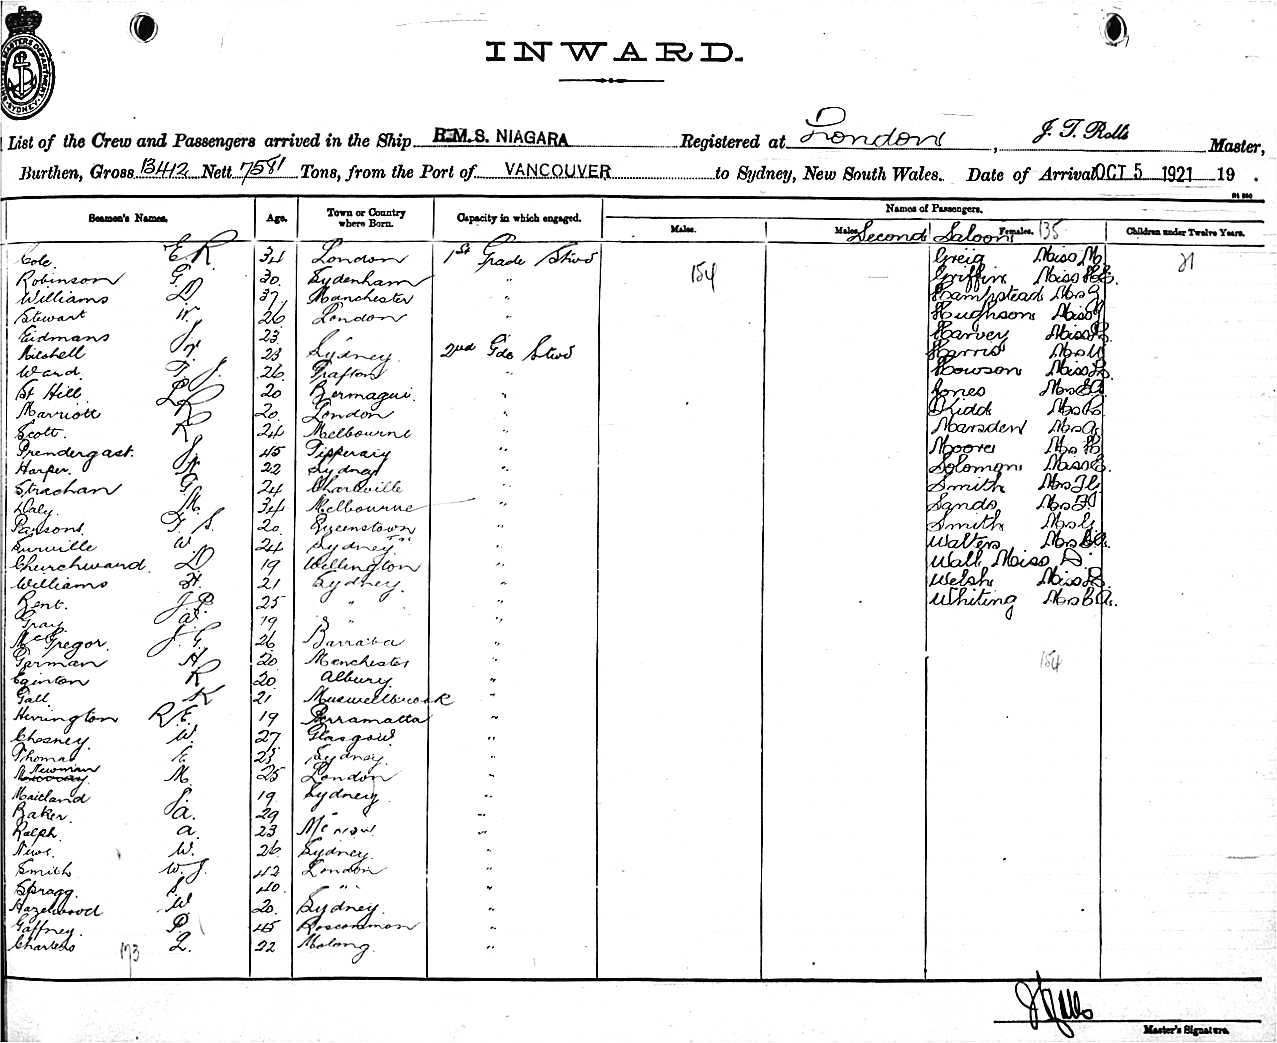 INWARD.
List of the Crew and Passengers arrived in the Ship R.M.S. NIAGARA Registered at London, J. T. Rolls Master,
Burthen, Gross 13412 Nett 7581 Tons, from the Port of VANCOUVER to Sydney, New South Wales. Date of Arrival OCT 5 1921 19 .
Seamen's Names. Age. Town or Country where Born. Capacity in which engaged. Names of Passengers.
Males. Males. Females. Children under Twelve Years.
Second Saloon 135
Cole E R 34 London 1st Grade Stwd Greig Miss M
Robinson G. 30. Sydenham " 154 Griffin Miss 21
Williams D 37, Manchester " Hampstead Mrs G
Stewart W. 26 London " Hughson Miss
Eidmans J 23 " Harvey Miss
Mitchell 23 Sydney 2nd Gde Stwd Harris Mrs
Ward T. J. 26 Grafton " Howson Miss
St Hill L 20 Bermagui " Jones Mrs
Marriott R 20 London " Kidd Mrs
Scott. R 24 Melbourne " Marsden Mrs A
Prendergast. J 45 Tipperary " Moore Mrs H
Harper. 22 Sydney " Solomon Miss
Strachan G. 24 Charleville " Smith Mrs
Daly. M. 34 Melbourne " Sands Mrs
Parsons. F. S. 20 Queenstown " Smith Mrs G.
Turville W. 24 Sydney " Walters Mrs
Churchward. D. 19 Wellington " Wall Miss D.
Williams H. 21 Sydney. " Welsh Miss
Bent. J P. 25 " " Whiting Mrs B A.
Gray. W. 19 " "
McGregor. J. G. 26 Barraba "
German H. 20 Manchester " 154
Eginton R 20 Albury "
Gall K 21 Muswellbrook "
Herrington R. E. 19 Parramatta "
Chesney. W. 27 Glasgow "
Thomas E. 23 Sydney. "
Newman
M. 25 London "
Maitland J. 19 Sydney "
Baker. A. 29 " "
Ralph. A. 23 "
News. W. 26 Sydney. "
Smith W. J. 42 London "
Spragg. J. 40. " "
Hazelwood W 20. Sydney. "
Gaffney. P. 45 Roscommon "
Charters 173 L. 22 Molong. "
J T Rolls
Master's Signature.